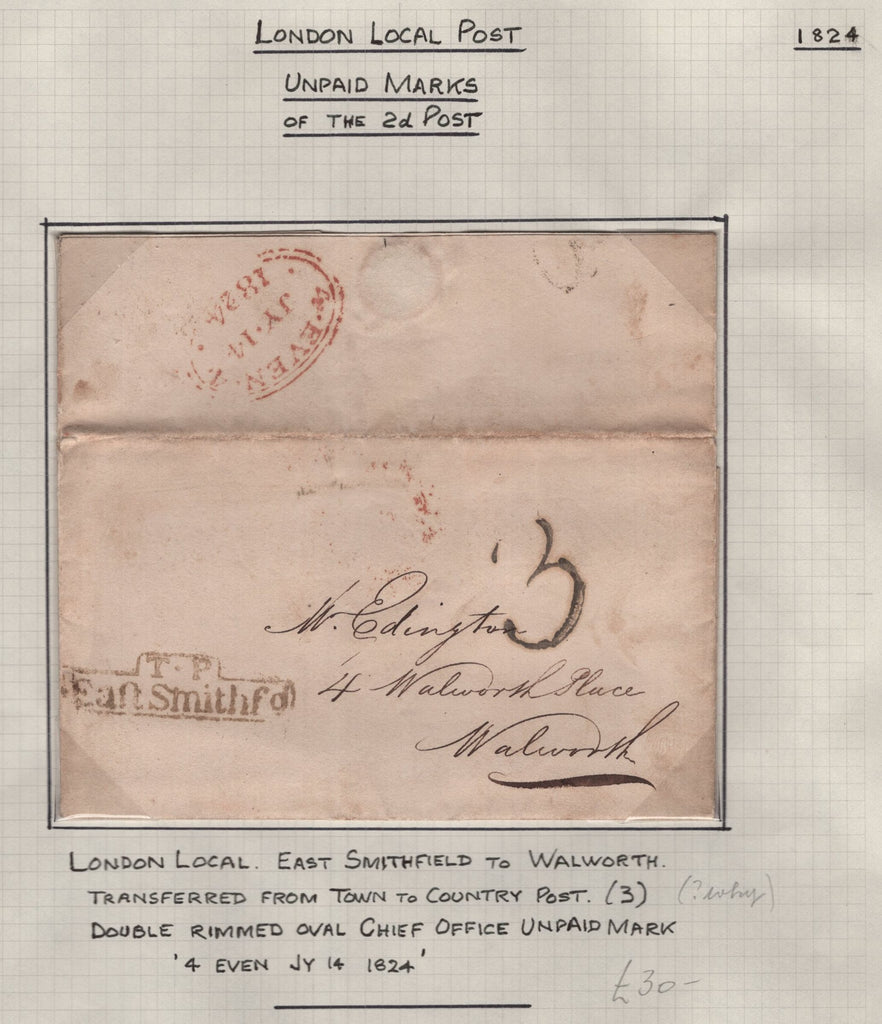 LONDON LOCAL POST
1824
UNPAID MARKS
OF THE 2d POST
4. EVEN
JY. 14
1824
3
Mr. Edington
4 Walworth Place
Walworth
T.P
East Smithfd
LONDON LOCAL. EAST SMITHFIELD TO WALWORTH.
TRANSFERRED FROM TOWN TO COUNTRY POST. (3) (? why)
DOUBLE RIMMED OVAL CHIEF OFFICE UNPAID MARK
'4 EVEN JY 14 1824'
£30-